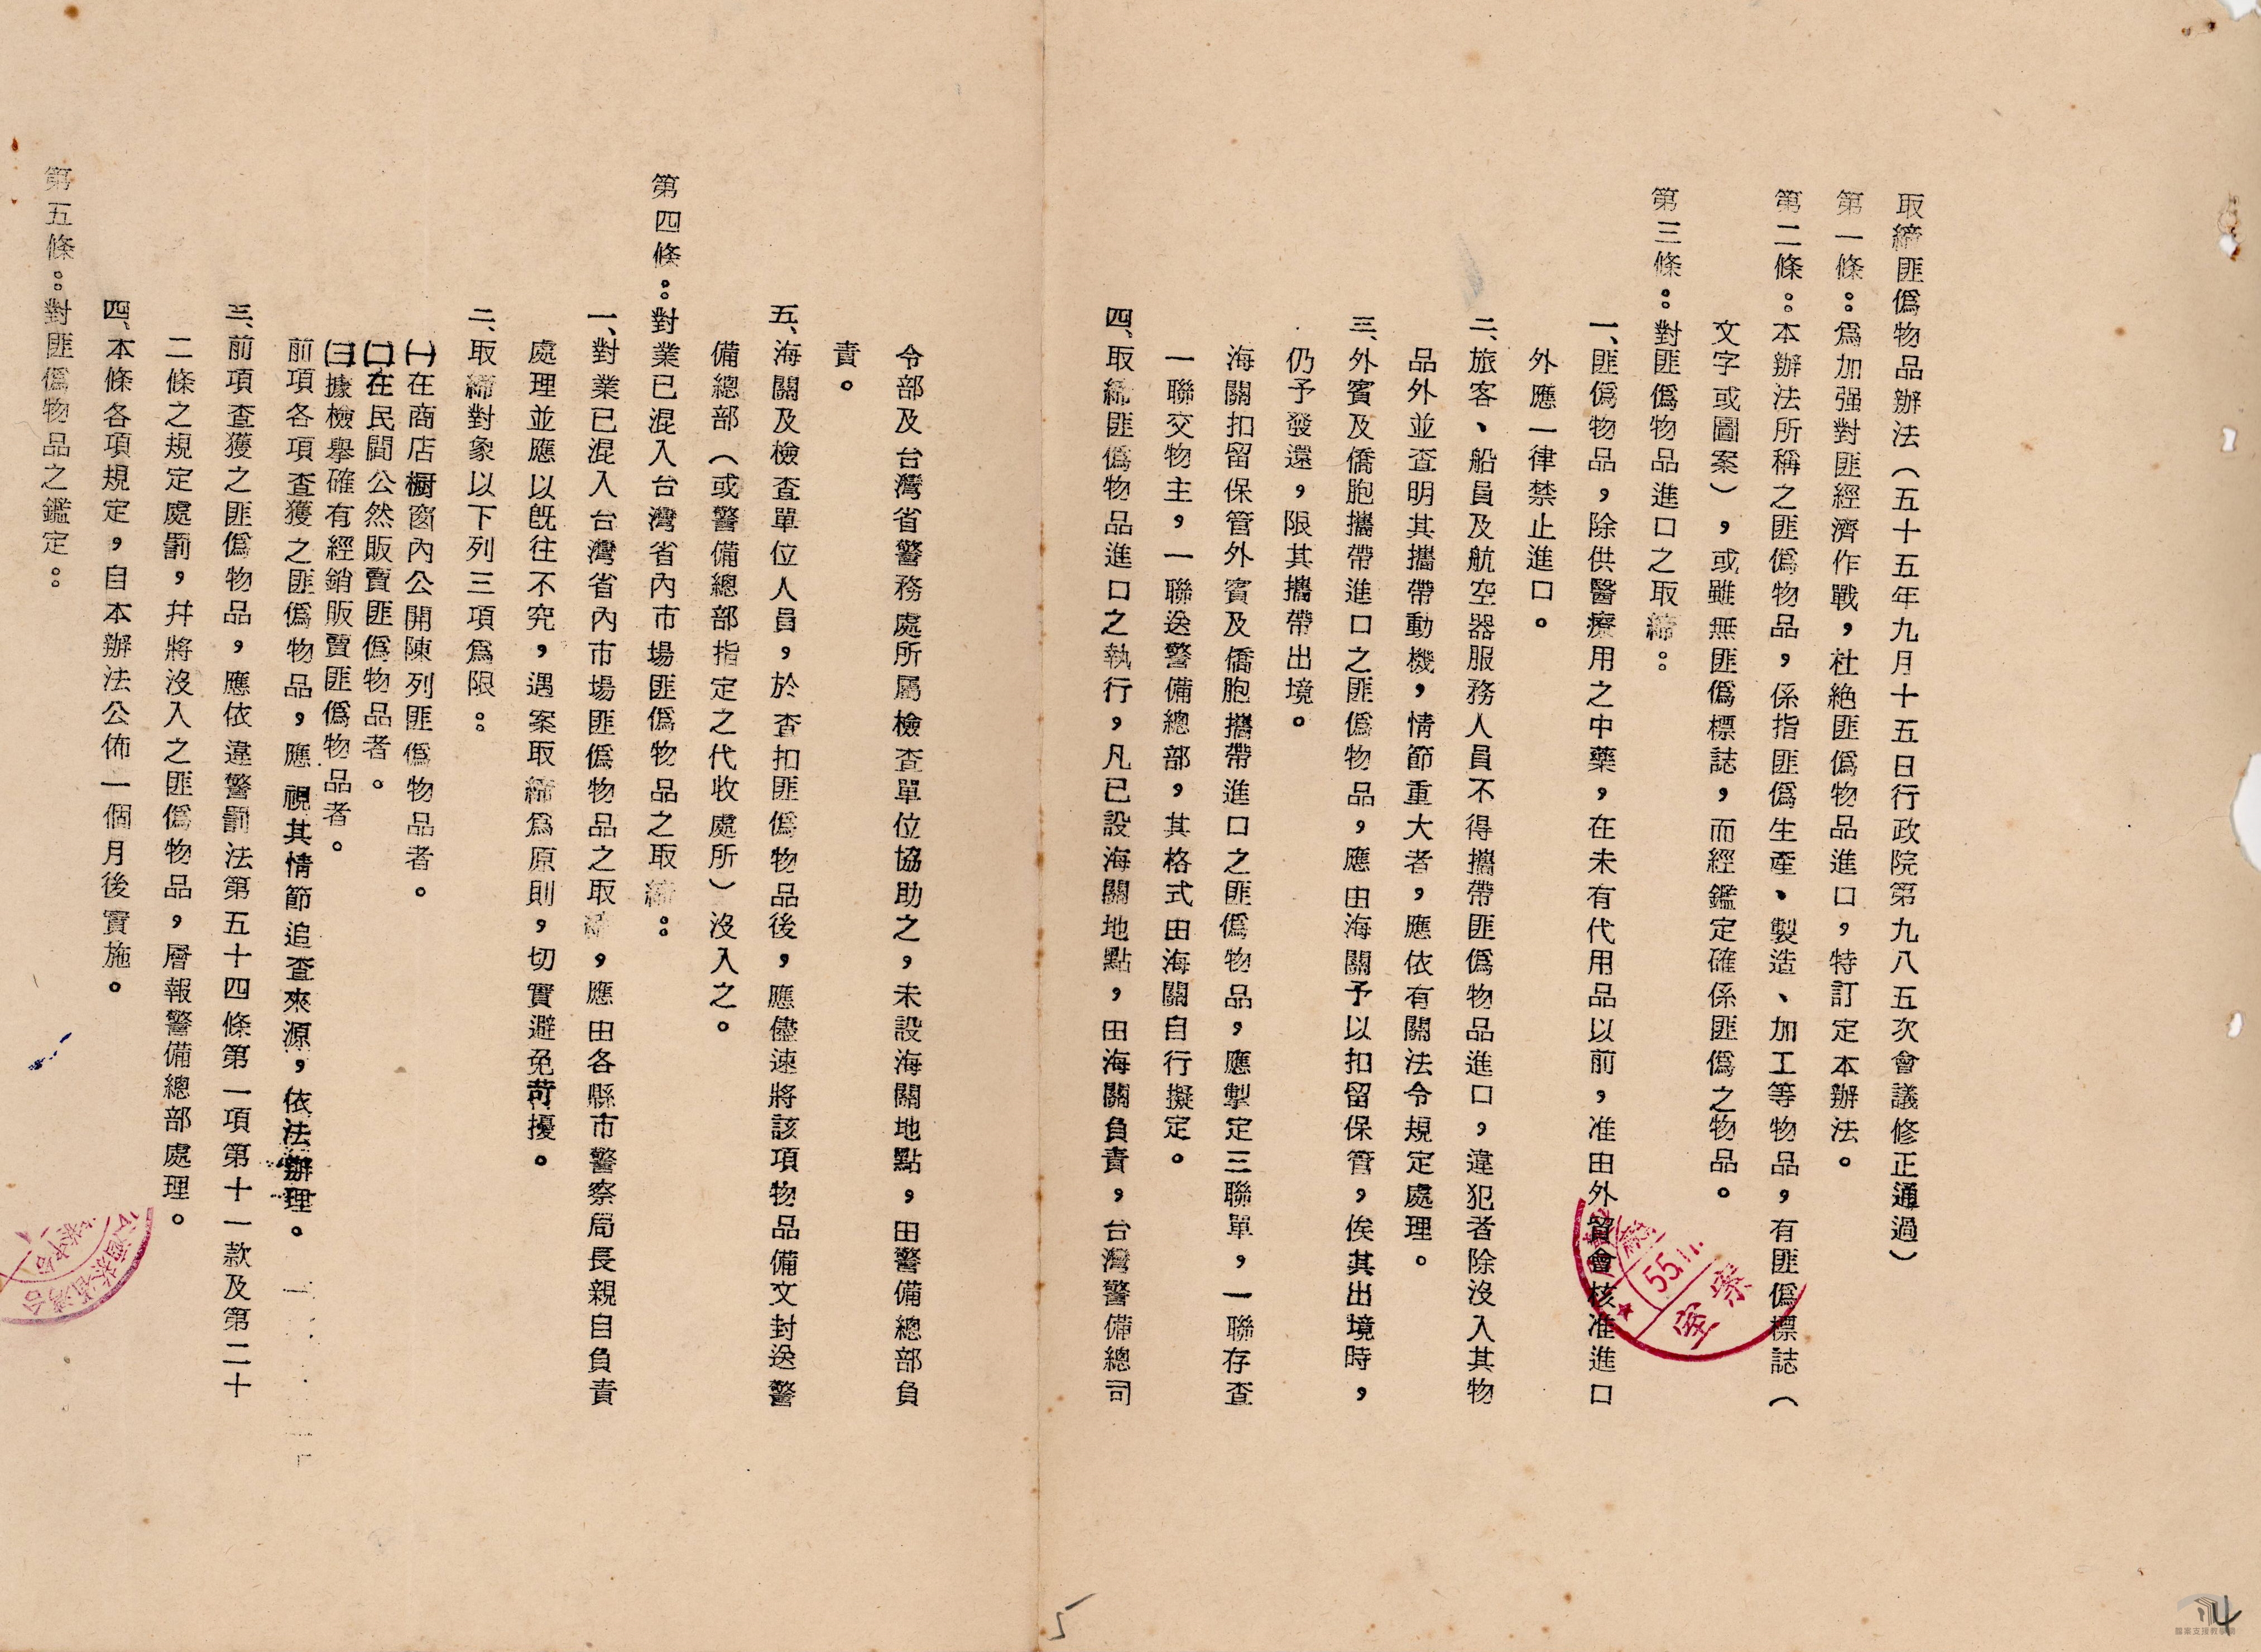 取締匪偽物品辦法（五十五年九月十五日行政院第九八五次會議修正通過）
第一條：為加强對匪經濟作戰，杜絕匪偽物品進口，特訂定本辦法。
第二條：本辦法所稱之匪偽物品，係指匪偽生產、製造、加工等物品，有匪偽標誌（
文字或圖案），或雖無匪偽標誌，而經鑑定確係匪偽之物品。
第三條：對匪偽物品進口之取締：
一、匪偽物品，除供醫療用之中藥，在未有代用品以前，准由外貿會核准進口
外應一律禁止進口。
二、旅客、船員及航空器服務人員不得攜帶匪偽物品進口，違犯者除沒入其物
品外並查明其攜帶動機，情節重大者，應依有關法令規定處理。
三、外賓及僑胞攜帶進口之匪偽物品，應由海關予以扣留保管，俟其出境時，
仍予發還，限其攜帶出境。
海關扣留保管外賓及僑胞攜帶進口之匪偽物品，應掣定三聯單，一聯存查
一聯交物主，一聯送警備總部，其格式由海關自行擬定。
四、取締匪偽物品進口之執行，凡已設海關地點，由海關負責，台灣警備總司
令部及台灣省警務處所屬檢查單位協助之，未設海關地點，由警備總部負
責。
五、海關及檢查單位人員，於查扣匪偽物品後，應儘速將該項物品備文封送警
備總部（或警備總部指定之代收處所）沒入之。
第四條：對業已混入台灣省內市場匪偽物品之取締：
一、對業已混入台灣省內市場匪偽物品之取締，應由各縣市警察局長親自負責
處理並應以旣往不究，遇案取締為原則，切實避免苛擾。
二、取締對象以下列三項為限：
㈠在商店橱窗內公開陳列匪偽物品者。
㈡在民間公然販賣匪偽物品者。
㈢據檢舉確有經銷販賣匪偽物品者。
前項各項查獲之匪偽物品，應視其情節追查來源，依法辦理。
三、前項查獲之匪偽物品，應依違警罰法第五十四條第一項第十一款及第二十
二條之規定處罰，幷將沒入之匪偽物品，層報警備總部處理。
四、本條各項規定，自本辦法公佈一個月後實施。
第五條：對匪偽物品之鑑定：
檔案
室
55.11.
5
14